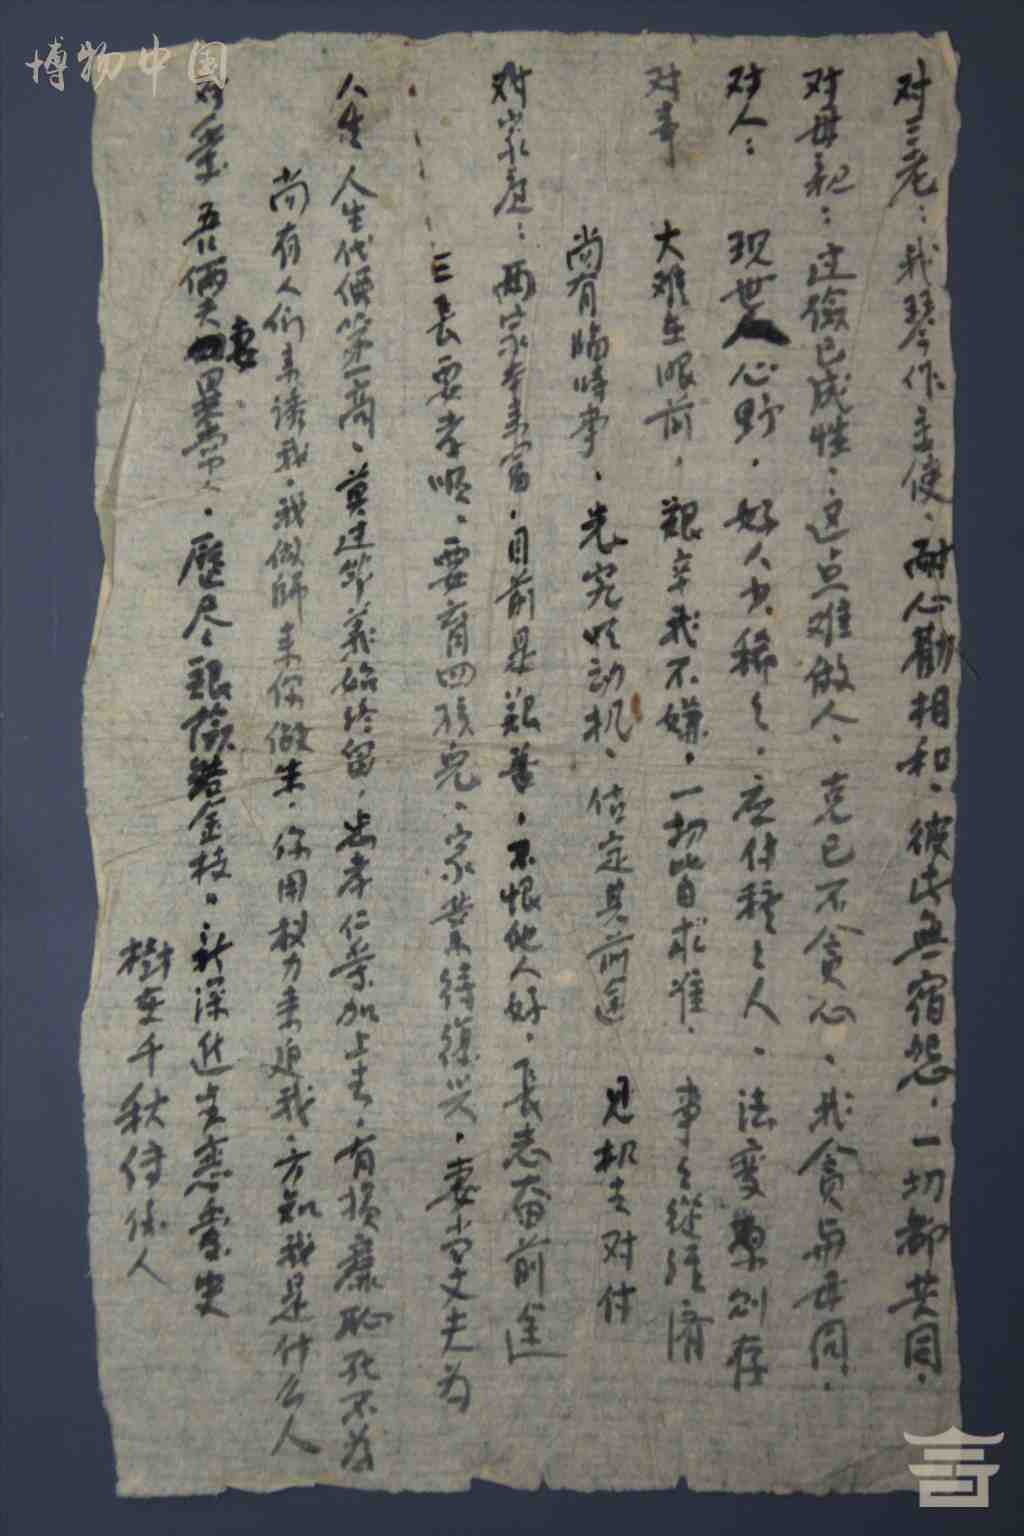 博物中国
对三老：我琴作主使、耐心勸相和、彼此無宿怨、一切都共同、
对母親：过儉已成性、这点难做人、克己不貪心、我貪與母同、
对人：现世人心野、好人少稀々、应付種々人、法变契则存
对事 大难在眼前、艱辛我不嫌、一切此自求准、事々從经济
尚有臨時事、先究明动机、估定其前途 見机去对付
对家庭：两家本来富、目前是艱善、不恨他人好、長志奋前途
三長要孝顺、要育四孩兒、家業待復兴、妻当丈夫为
人生 人生代價第一高、莫过节義始终留、忠孝仁 加上去、有损廉恥死不为
尚有人们来诱我、我做師来你做生、你用权力来迫我、方知我是什么人
对 吾俩夫妻 、歷尽艱險結金枝、 深 恋爱史
樹 千秋待後人